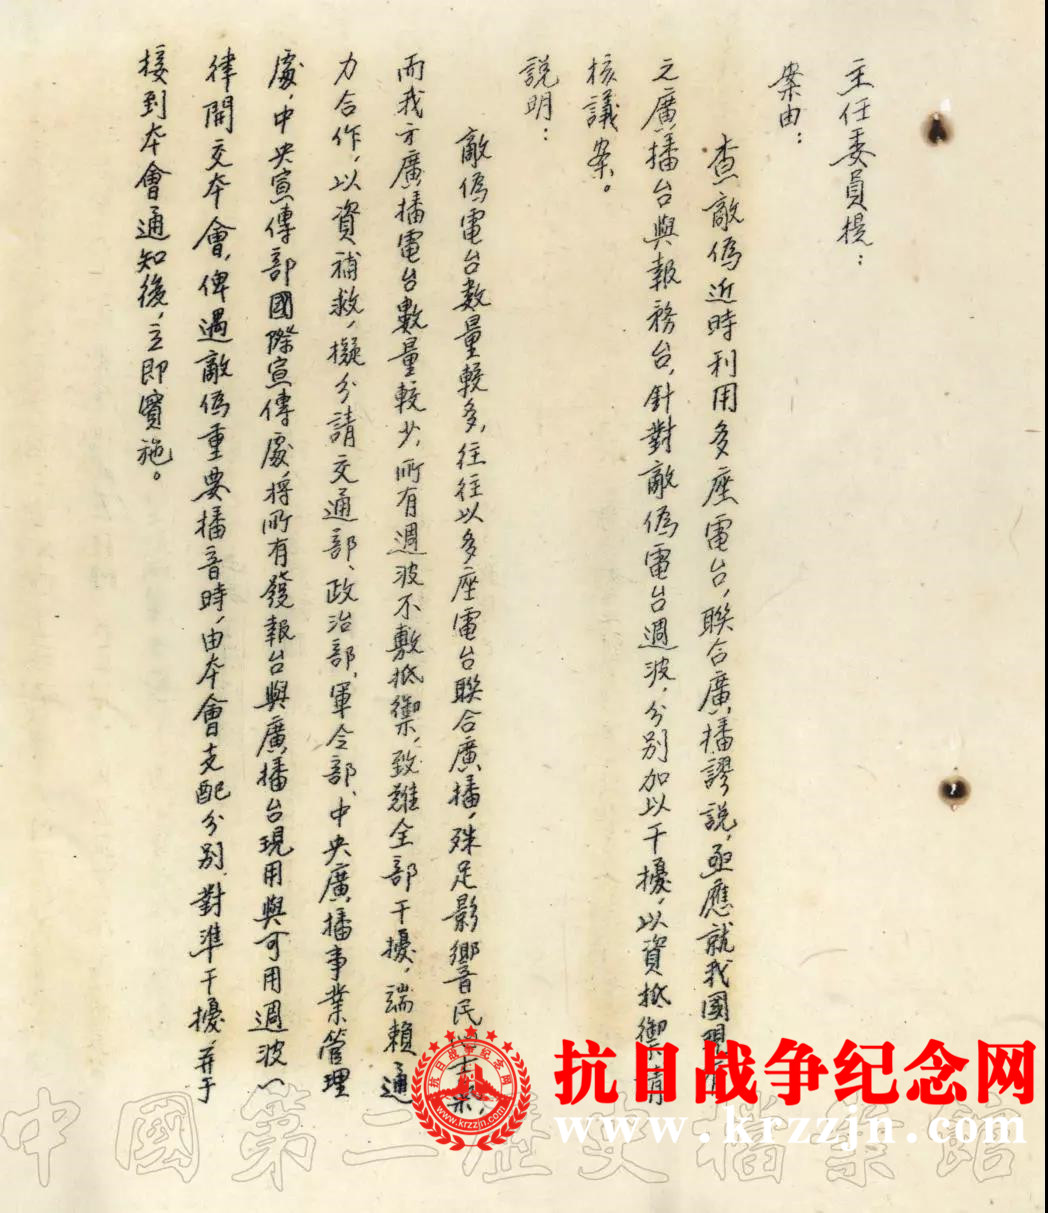 主任委員提：
案由：
查敵偽近時利用多座電台，聯合廣播謬說，亟應就我國現有
之廣播台與報務台，針對敵偽電台週波，分別加以干擾，以資抵禦，請
核議案。
說明：
敵偽電台數量較多，往往以多座電台聯合廣播，殊足影響民心士氣，
而我方廣播電台數量較少，所有週波不敷抵禦，致難全部干擾，端賴通
力合作，以資補救，擬分請交通部、政治部、軍令部、中央廣播事業管理
處，中央宣傳部國際宣傳處，將所有發報台與廣播台現用與可用週波一
律開交本會，俾遇敵偽重要播音時，由本會支配分別，對準干擾，并于
接到本會通知後，立即實施。
抗日战争纪念网
www.krzzjn.com
抗日战争纪念网
www.krzzjn.com
中國第二歷史檔案館